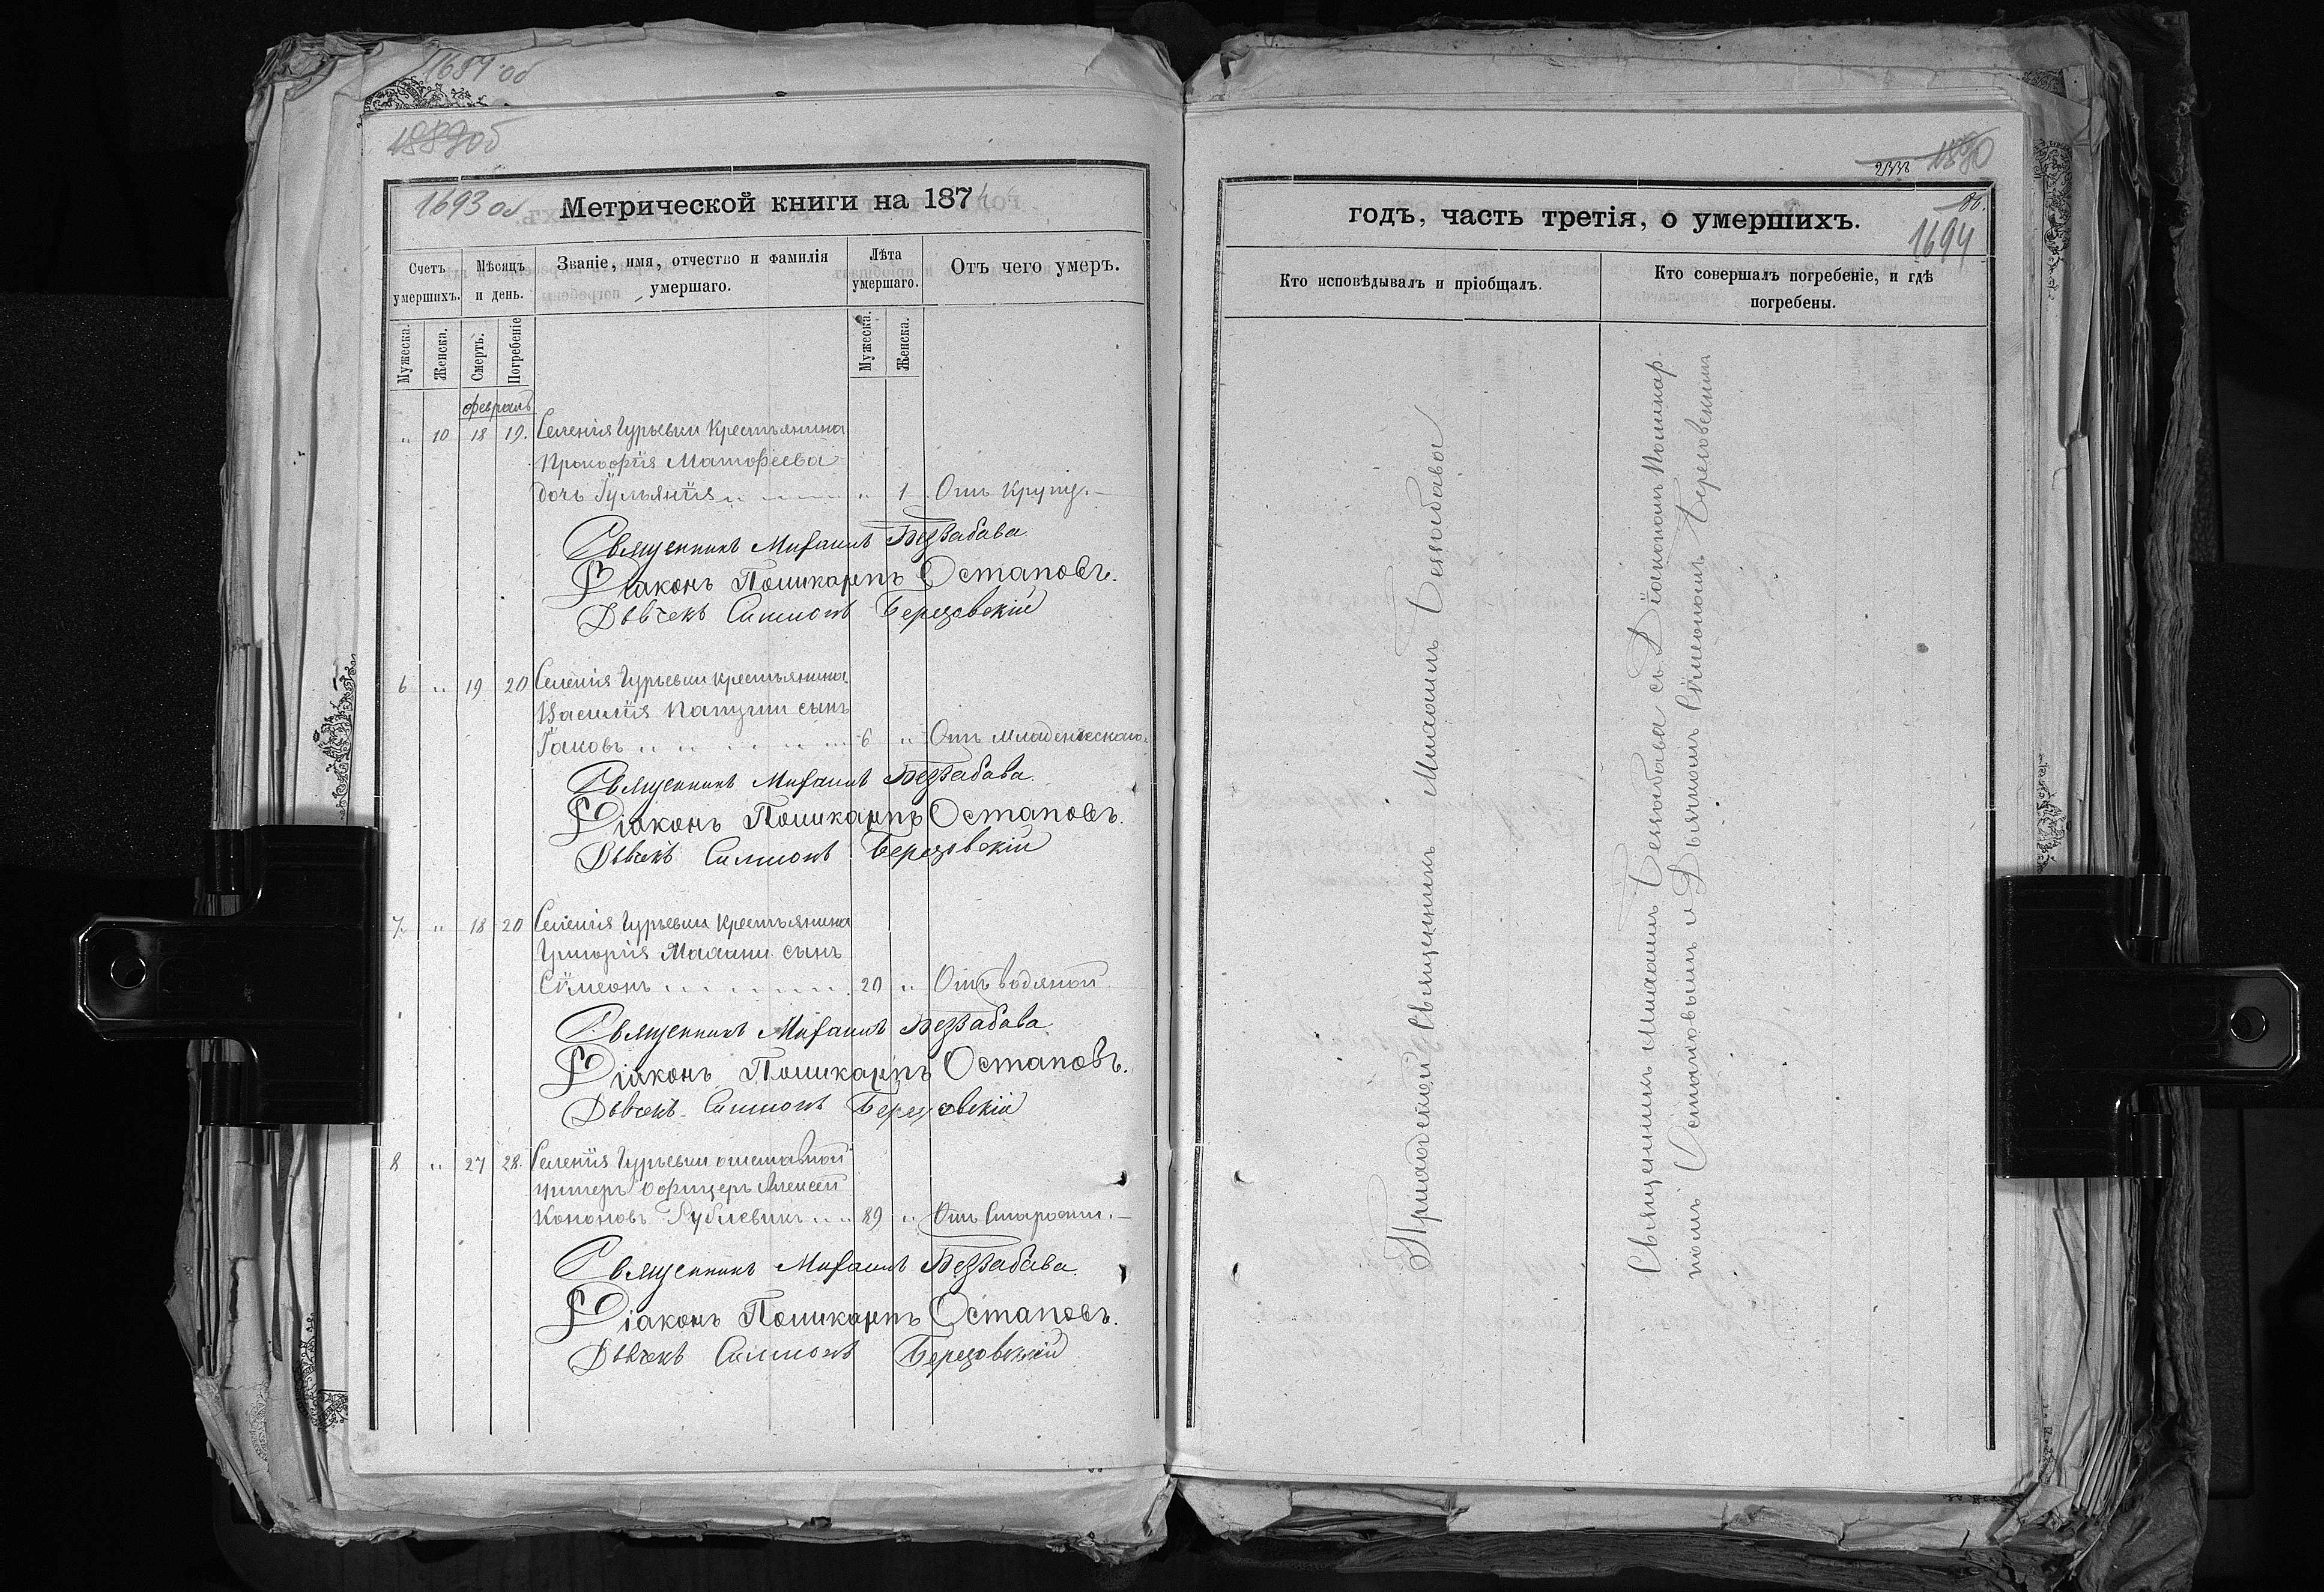 1889об
1693 об.
Метрической книги на 1874
Счетъ умершихъ.
Мѣсяцъ и день.
Званіе, имя, отчество и фамилія умершаго.
Лѣта умершаго.
Отъ чего умеръ.
Мужеска.
Женска.
Смерть.
Погребеніе
Мужеска.
Женска.
февраль
" 10 18 19. Селенія Гурьевки крестьянина
Прокофія Матофеева
дочь Іульянія " 1 Отъ крупу.
Священникъ Михаилъ Беззабава
Діаконъ Поликарпъ Остаповъ.
Дьячекъ Симеонъ Березовскій
6 " 19 20 Селенія Гурьевки крестьянина
Василія Папуши сынъ
Іаковъ 6 " Отъ младенческаго.
Священникъ Михаилъ Беззабава.
Діаконъ Поликарпъ Остаповъ.
Дьячекъ Симеонъ Березовскій
7 " 18 20 Селенія Гурьевки крестьянина
Григорія сынъ
Сѵмеонъ 20 " Отъ водяной
Священникъ Михаилъ Беззабава
Діаконъ Поликарпъ Остаповъ.
Дьячекъ Симеонъ Березовскій
8 " 27 28. Селенія Гурьевки отставной
унтеръ офицеръ Алексей
Кононовъ 89 " Отъ старости.
Священникъ Михаилъ Беззабава.
Діаконъ Поликарпъ Остаповъ.
Дьячекъ Симеонъ Березовскій
1890
1694
годъ, часть третія, о умершихъ.
Кто исповѣдывалъ и пріобщалъ.
Кто совершалъ погребеніе, и гдѣ
погребены.
Приходской Священникъ Михаилъ Беззабава
Священникъ Михаилъ Беззабава съ Діакономъ Поликар
помъ Остаповымъ и Дьячкомъ Сѵмеономъ Березовскимъ